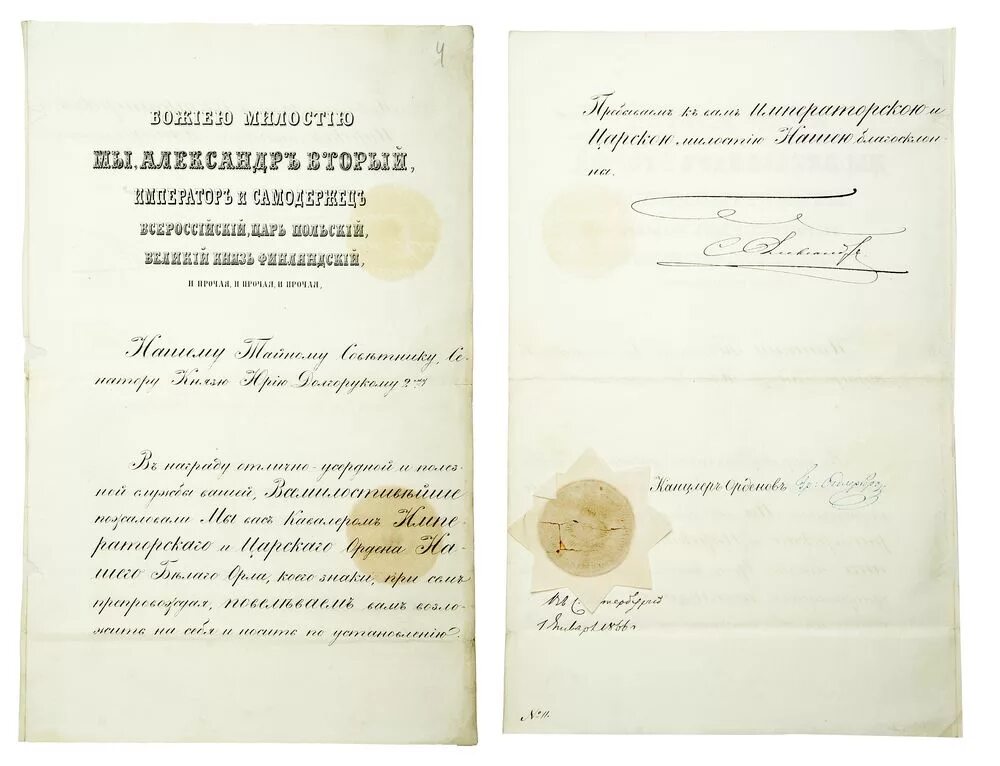 4
БОЖІЕЮ МИЛОСТІЮ
МЫ, АЛЕКСАНДРЪ ВТОРЫЙ,
ИМПЕРАТОРЪ и САМОДЕРЖЕЦЪ
ВСЕРОССІЙСКІЙ, ЦАРЬ ПОЛЬСКІЙ,
ВЕЛИКІЙ КНЯЗЬ ФИНЛЯНДСКІЙ,
И ПРОЧАЯ, И ПРОЧАЯ, И ПРОЧАЯ,
Нашему Тайному Совѣтнику, Се-
натору Князю Юрію Долгорукому 2му
Въ награду отлично-усердной и полез-
ной службы вашей, Всемилостивѣйше
пожаловали Мы васъ Кавалеромъ Импе-
раторскаго и Царскаго Ордена На-
шего Бѣлаго Орла, коего знаки, при семъ
препровождая, повелѣваемъ вамъ возло-
жить на себя и носить по установленію.
Пребываемъ къ вамъ Императорскою и
Царскою милостію Нашею благосклон-
на.
Александръ
Канцлеръ Орденовъ гр:
Въ С. Петербургѣ
1 Января 1866 г
№ 11.